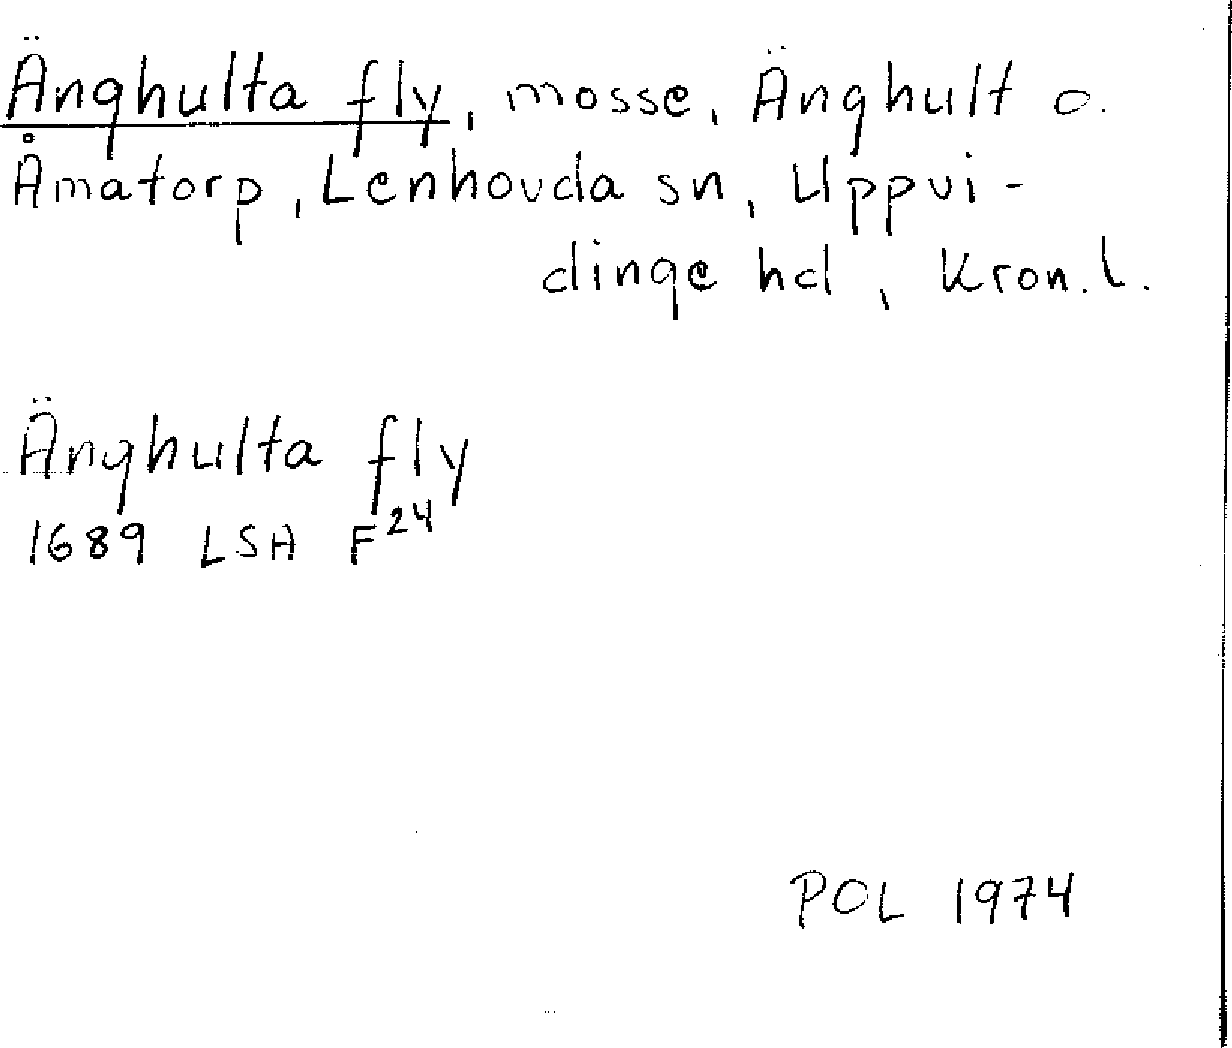 Änghulta fly, mosse, Änghult o.
Åmatorp, Lenhovda sn, Uppvi-
dinge hd, Kron. l.
Änghulta fly
1689 LSA F24
POL 1974